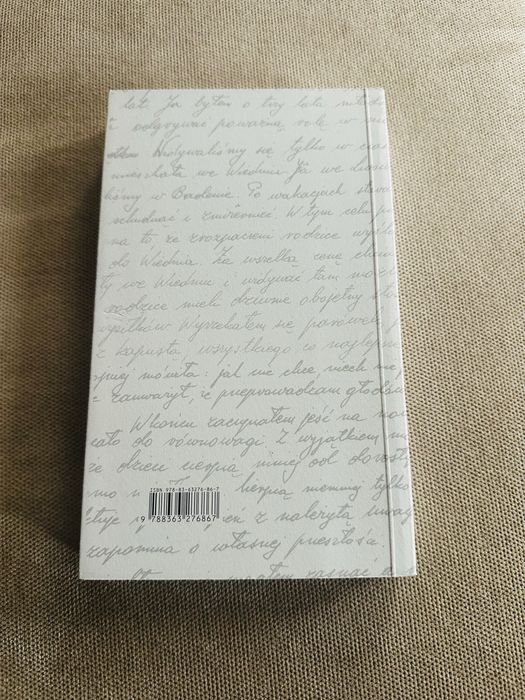 lat. Ja byłem o trzy lata młods
i odgrywać poważną rolę w
Widywaliśmy się tylko w czas
mieszkała we Wiedniu Ja we
liśmy w Badenie. Po wakacjach stara
schudnąć i zmizernieć. W tym celu
na to, że zrozpaczeni rodzice wyśl
do Wiednia. Za wszelką cenę
ty we Wiedniu i widywać tam
rodzice mieli dziwnie obojętny
Wyrzekałem się parówek
z kapustą, wszystkiego co najlepsze
mówiła: jak nie chce, niech nie
zauważył, że przeprowadzam głodów
W końcu zacząłem jeść na
cało do równowagi Z wyjątkiem
że dzieci cierpią mniej od dorosły
cierpią niemniej tylko
z należytą uwagą
zapomina o własnej przeszłości.
zasnąć
ISBN 978-83-63276-86-7
9 788363 276867